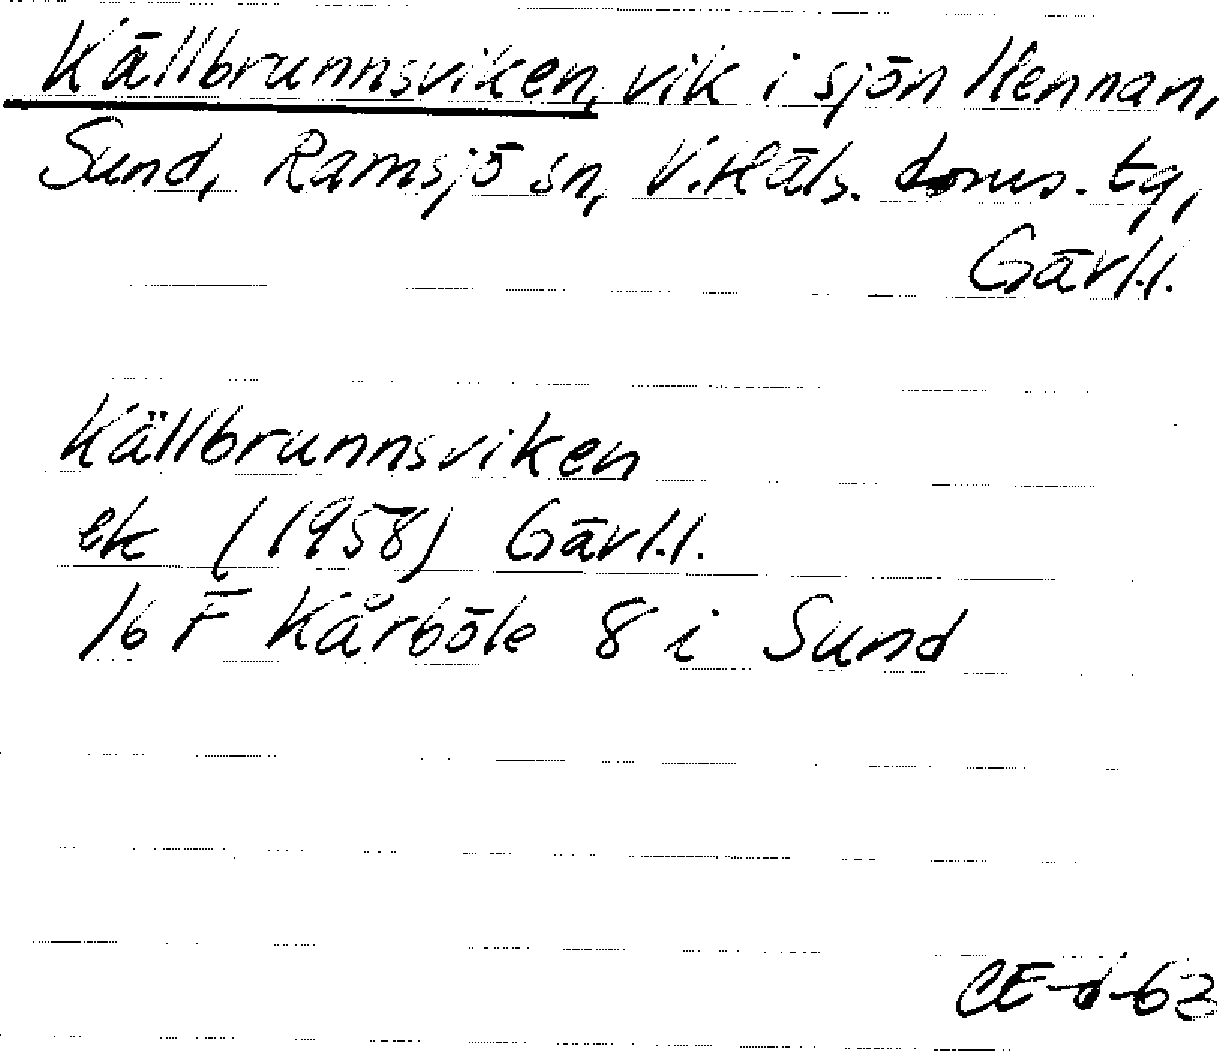 Källbrunnsviken, vik i sjön Hennan,
Sund, Ramsjö sn, V.Häls. doms. tg,
Gävl.l.
Källbrunnsviken
ek (1958) Gävl.l.
16 F Kårböle 8 i Sund